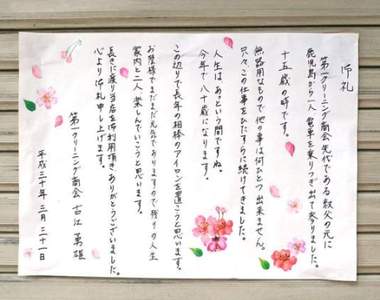 御礼
第一クリーニング商会先代である叔父の元に
鹿児島から一人電車を乗りつぎ出て参りました。
十五歳の時です。
無器用なもので他の事は何ひとつ出来ません。
只々この仕事をひたすらに続けてきました。
人生はあっという間ですね。
今年で八十歳になります。
この辺りで長年の相棒のアイロンを置こうと思います。
お陰様でまだまだ元気でありますので残りの人生
家内と二人楽しんでいこうと思います。
長きに渡り当店を御利用頂きありがとうございました。
心より御礼申し上げます。
第一クリーニング商会 古江 勇雄
平成三十年 三月 三十一日